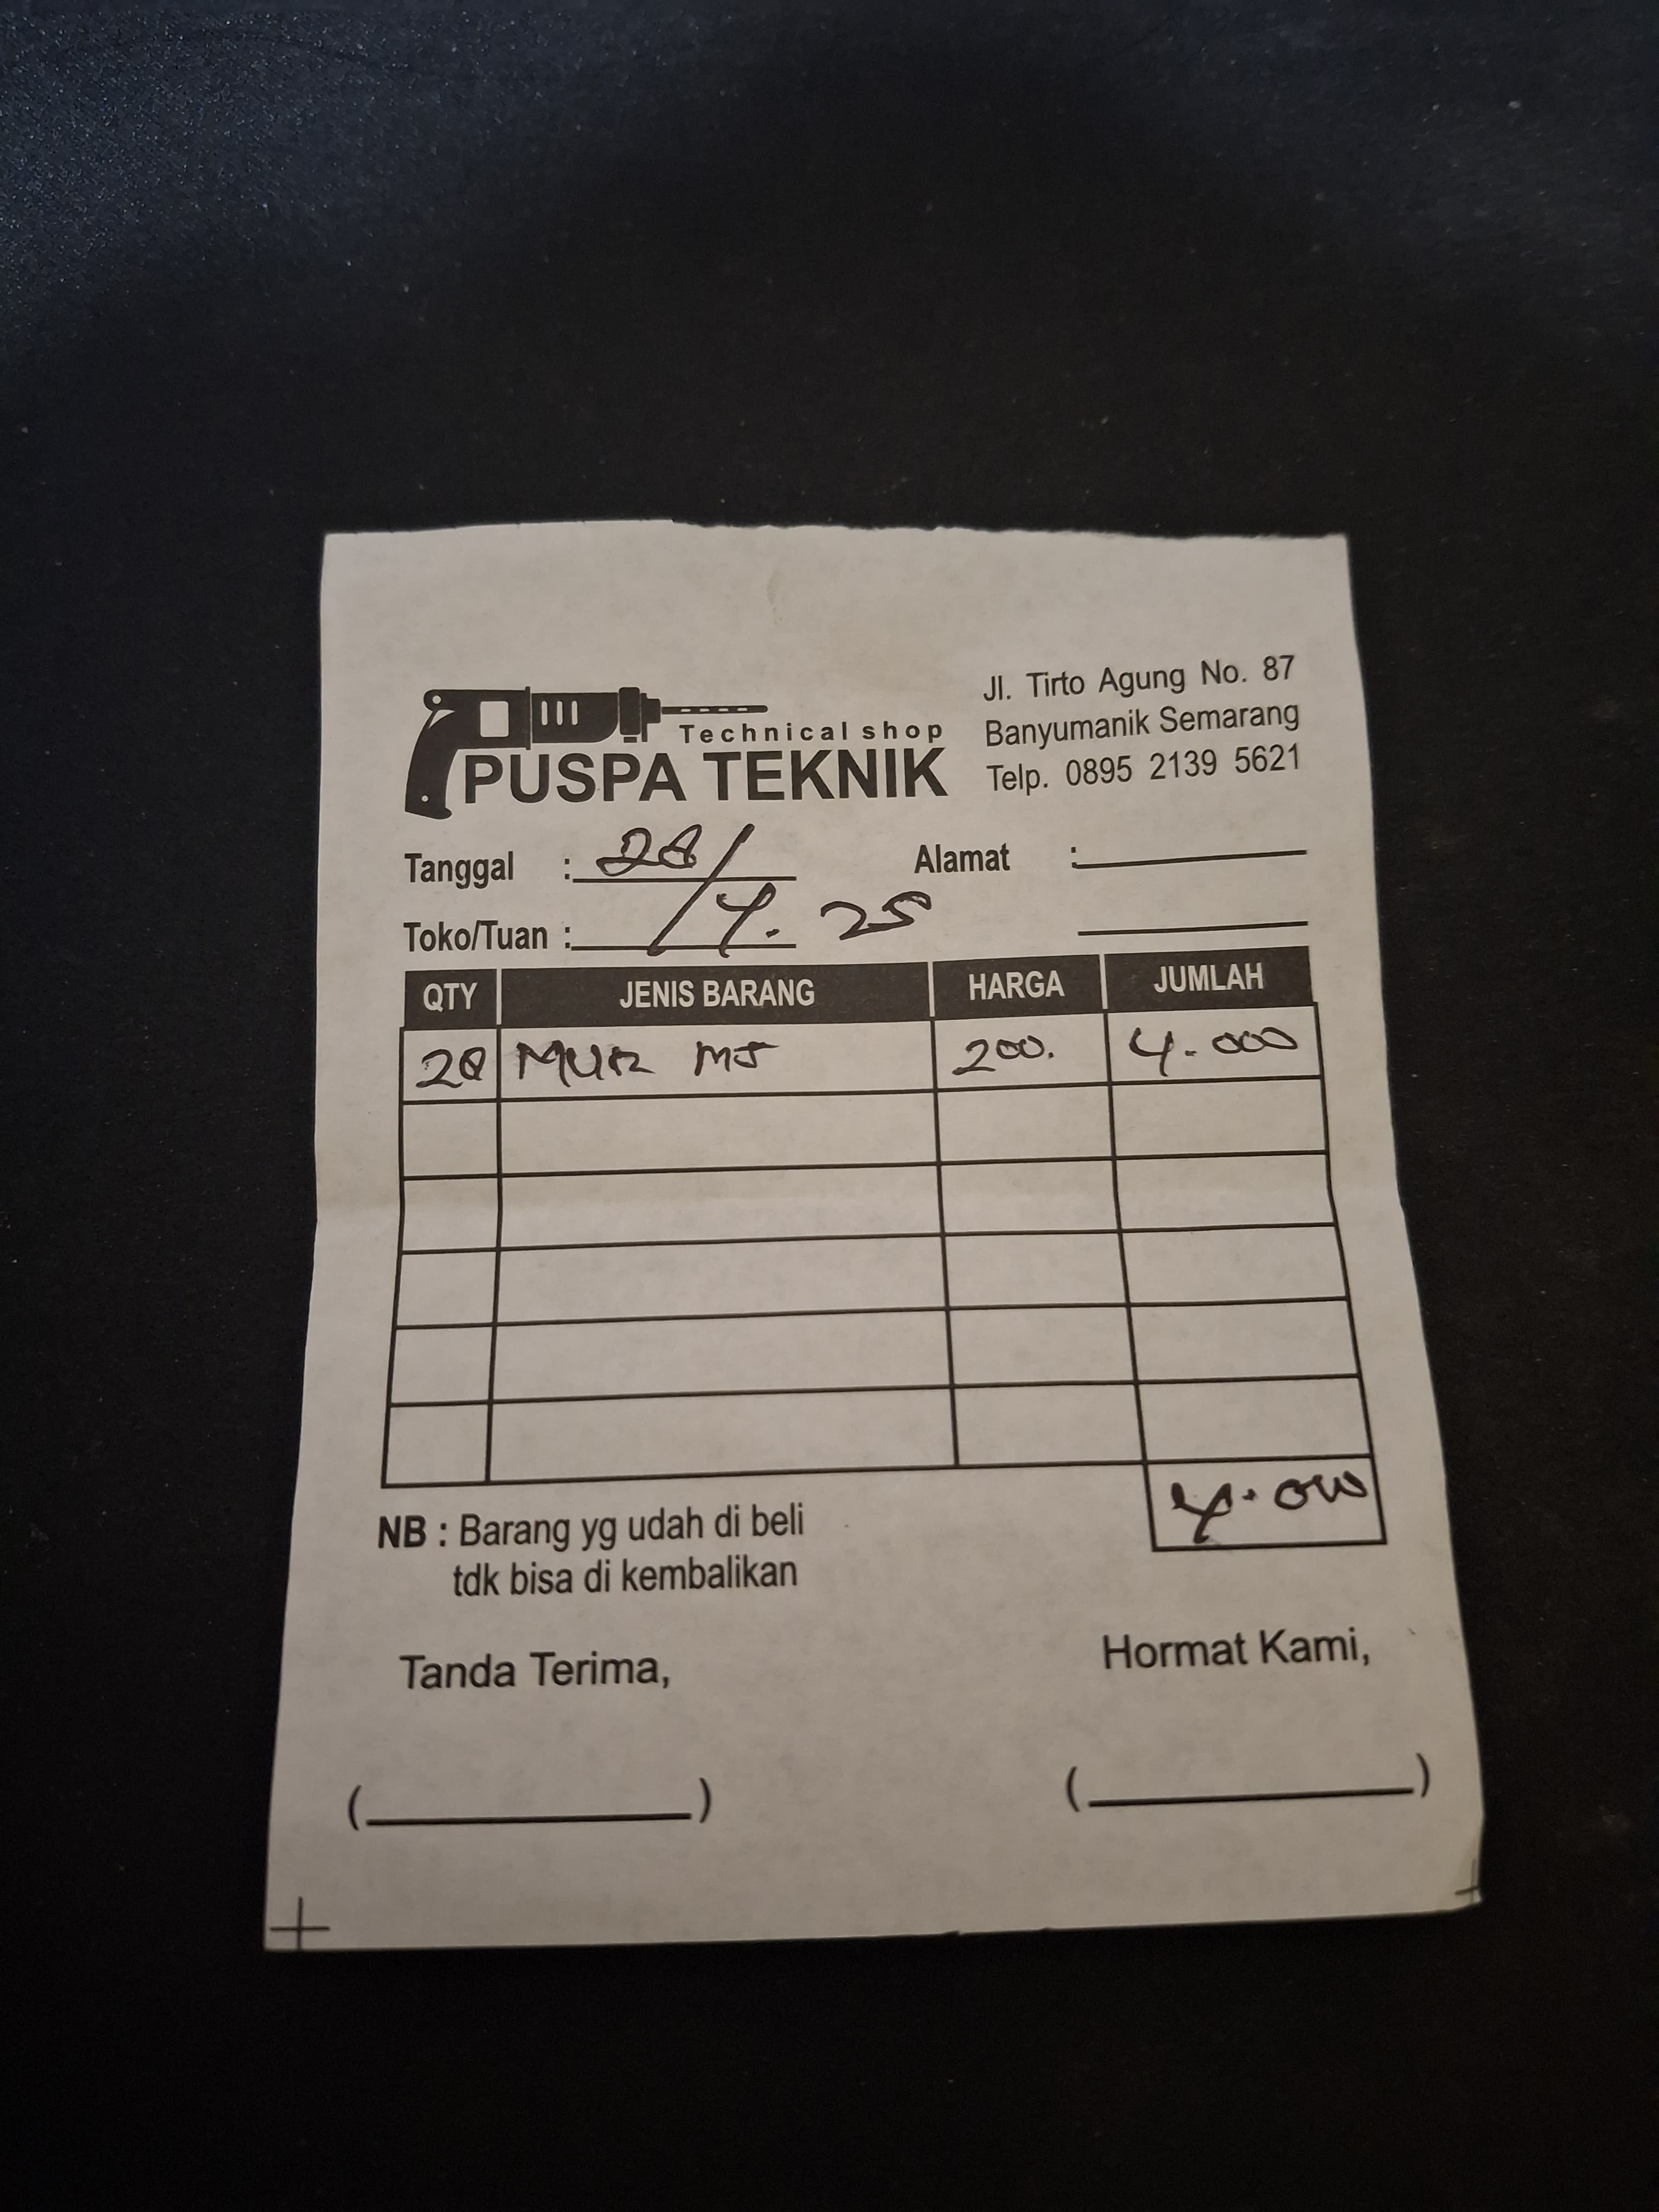 Technical shop
PUSPA TEKNIK
Jl. Tirto Agung No. 87
Banyumanik Semarang
Telp. 0895 2139 5621
Tanggal : 28/
Alamat :
Toko/Tuan : /4. 25
QTY JENIS BARANG HARGA JUMLAH
20 MUR M5 200. 4.000
4.000
NB : Barang yg udah di beli
tdk bisa di kembalikan
Tanda Terima,
Hormat Kami,